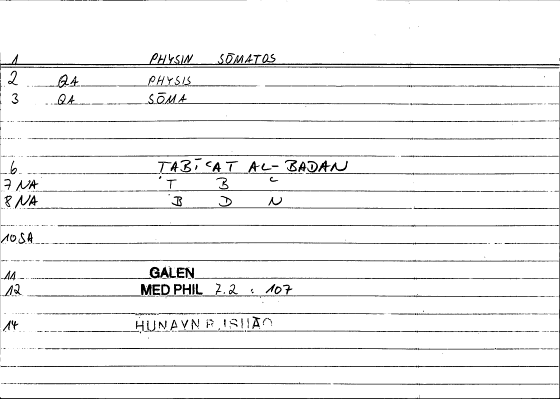 1 PHYSIN SŌMATOS
2 QA PHYSIS
3 QA SŌMA
6 ṬABĪʿAT AL-BADAN
7 NA Ṭ B ʿ
8 NA B D N
10 SA
11 GALEN
12 MED PHIL 2.2 : 107
14 HUNAYN B. ISḤĀQ